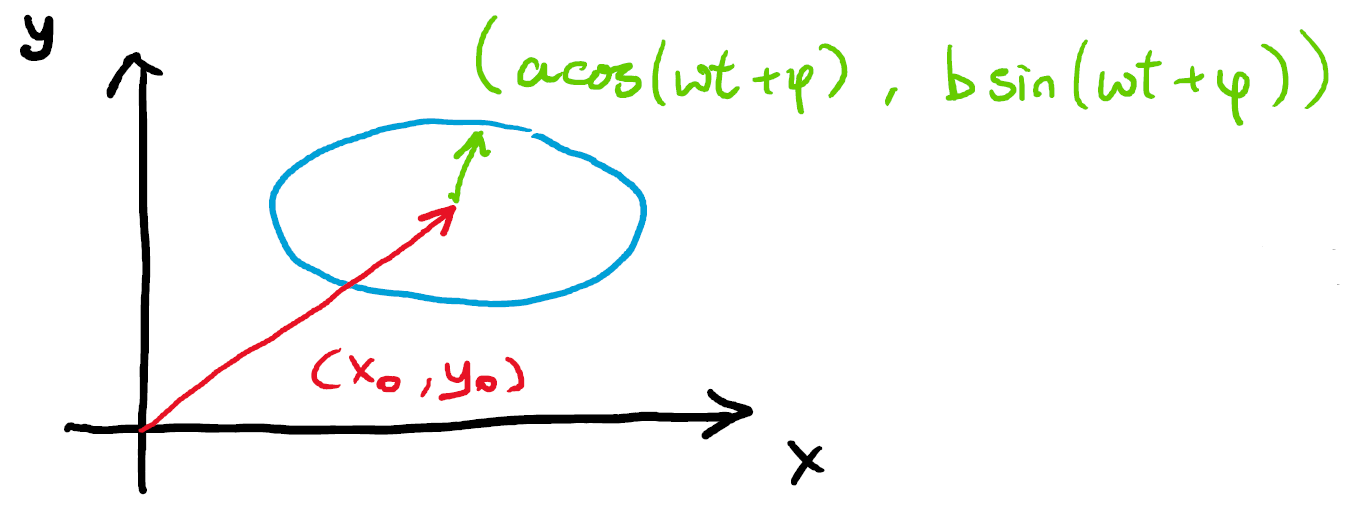 y
(acos(ωt+φ), bsin(ωt+φ))
(x₀, y₀)
x